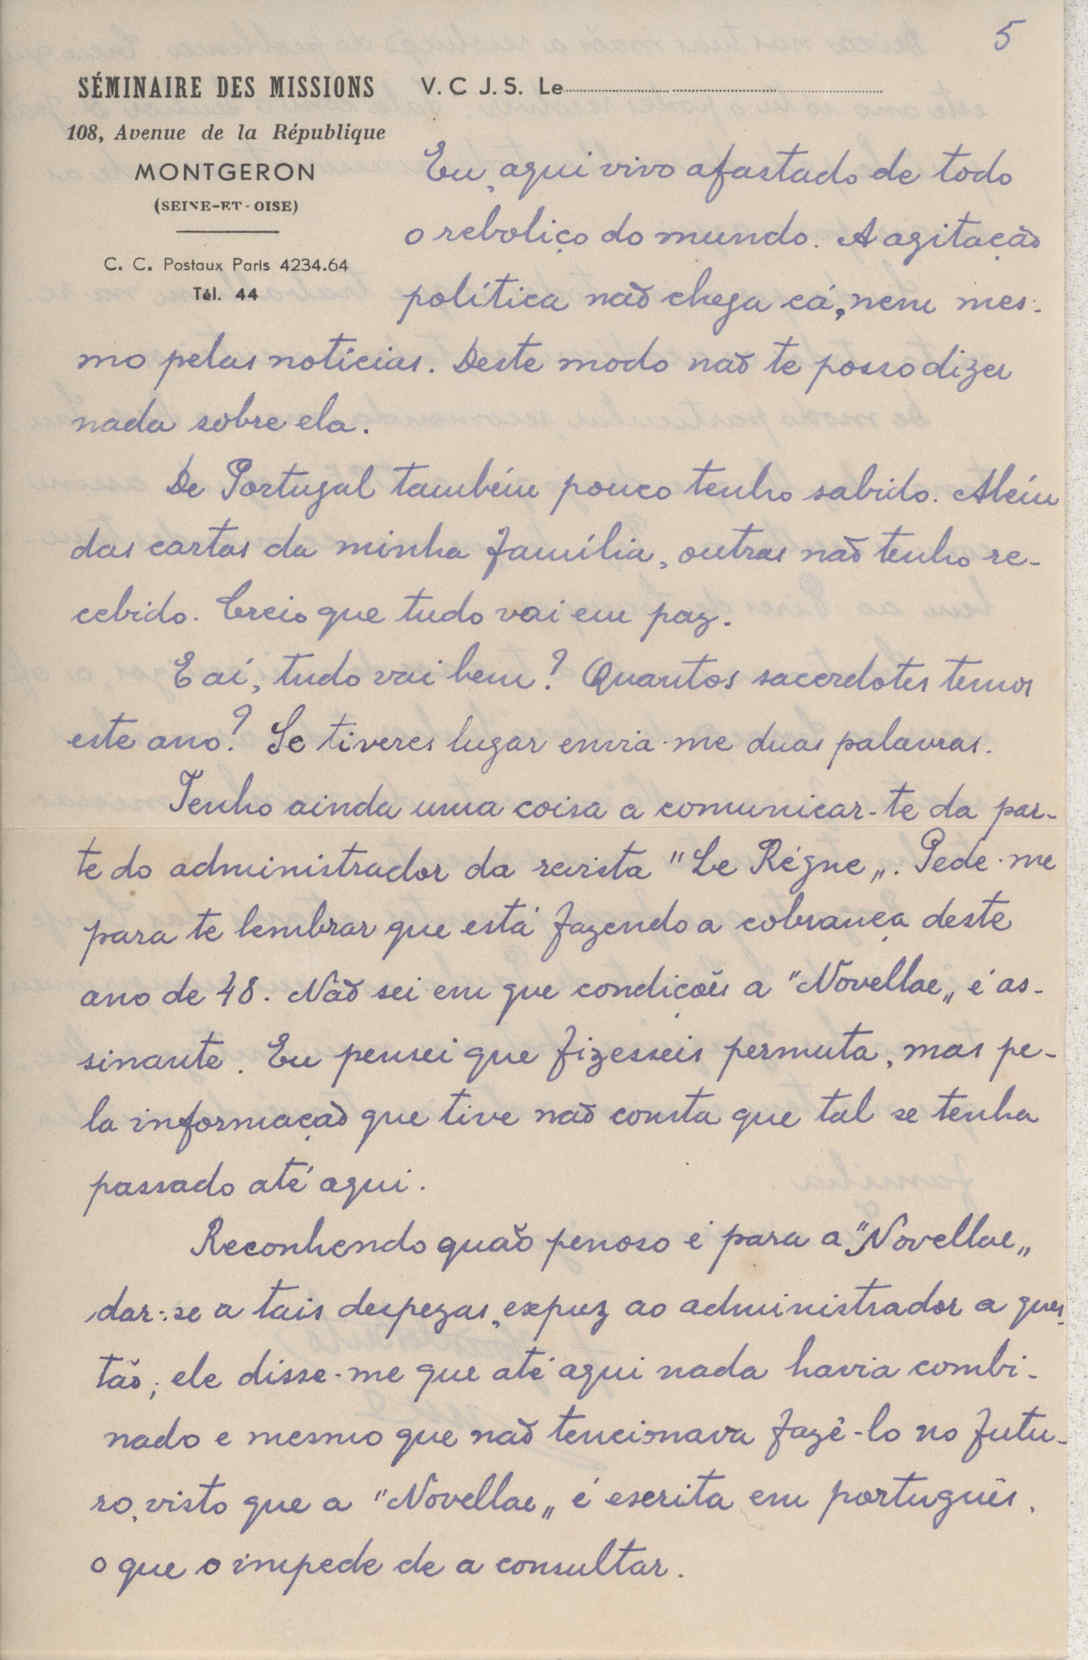 5
SÉMINAIRE DES MISSIONS
108, Avenue de la République
MONTGERON
(SEINE-ET-OISE)
C. C. Postaux Paris 4234.64
Tél. 44
V. C J. S. Le
Eu, aqui vivo afastado de todo
o reboliço do mundo. A agitação
política não chega cá, nem mes-
mo pelas notícias. Deste modo não te posso dizer
nada sobre ela.
De Portugal também pouco tenho sabido. Além
das cartas da minha família, outras não tenho re-
cebido. Creio que tudo vai em paz.
E aí, tudo vai bem? Quantos sacerdotes temos
este ano? Se tiveres lugar envia-me duas palavras.
Tenho ainda uma coisa a comunicar-te da par-
te do administrador da revista "Le Régne„. Pede-me
para te lembrar que está fazendo a cobrança deste
ano de 48. Não sei em que condições a "Novellae„ é as-
sinante. Eu pensei que fizesseis permuta, mas pe-
la informação que tive não consta que tal se tenha
passado até aqui.
Reconhendo quão penoso é para a "Novellae„
dar-se a tais despezas, expuz ao administrador a ques-
tão; ele disse-me que até aqui nada havia combi-
nado e mesmo que não tencionava fazê-lo no futu-
ro, visto que a "Novellae„ é escrita em português,
o que o impede de a consultar.